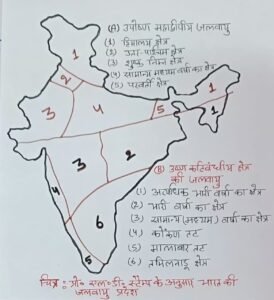 (A) उपोष्ण महाद्वीपीय जलवायु
(1) हिमालय क्षेत्र
(2) उत्तर-पश्चिम क्षेत्र
(3) शुष्क निम्न क्षेत्र
(4) सामान्य मध्यम वर्षा का क्षेत्र
(5) परवर्ती क्षेत्र
1
2
3
4
5
3
2
(B) उष्ण कटिबंधीय क्षेत्र
की जलवायु
(1) अत्यधिक भारी वर्षा का क्षेत्र
(2) भारी वर्षा का क्षेत्र
(3) सामान्य (मध्यम) वर्षा का क्षेत्र
(4) कोंकण तट
(5) मालाबार तट
(6) तमिलनाडु क्षेत्र
1
4
6
5
चित्र: प्रो० एल० डी० स्टैम्प के अनुसार भारत की
जलवायु प्रदेश